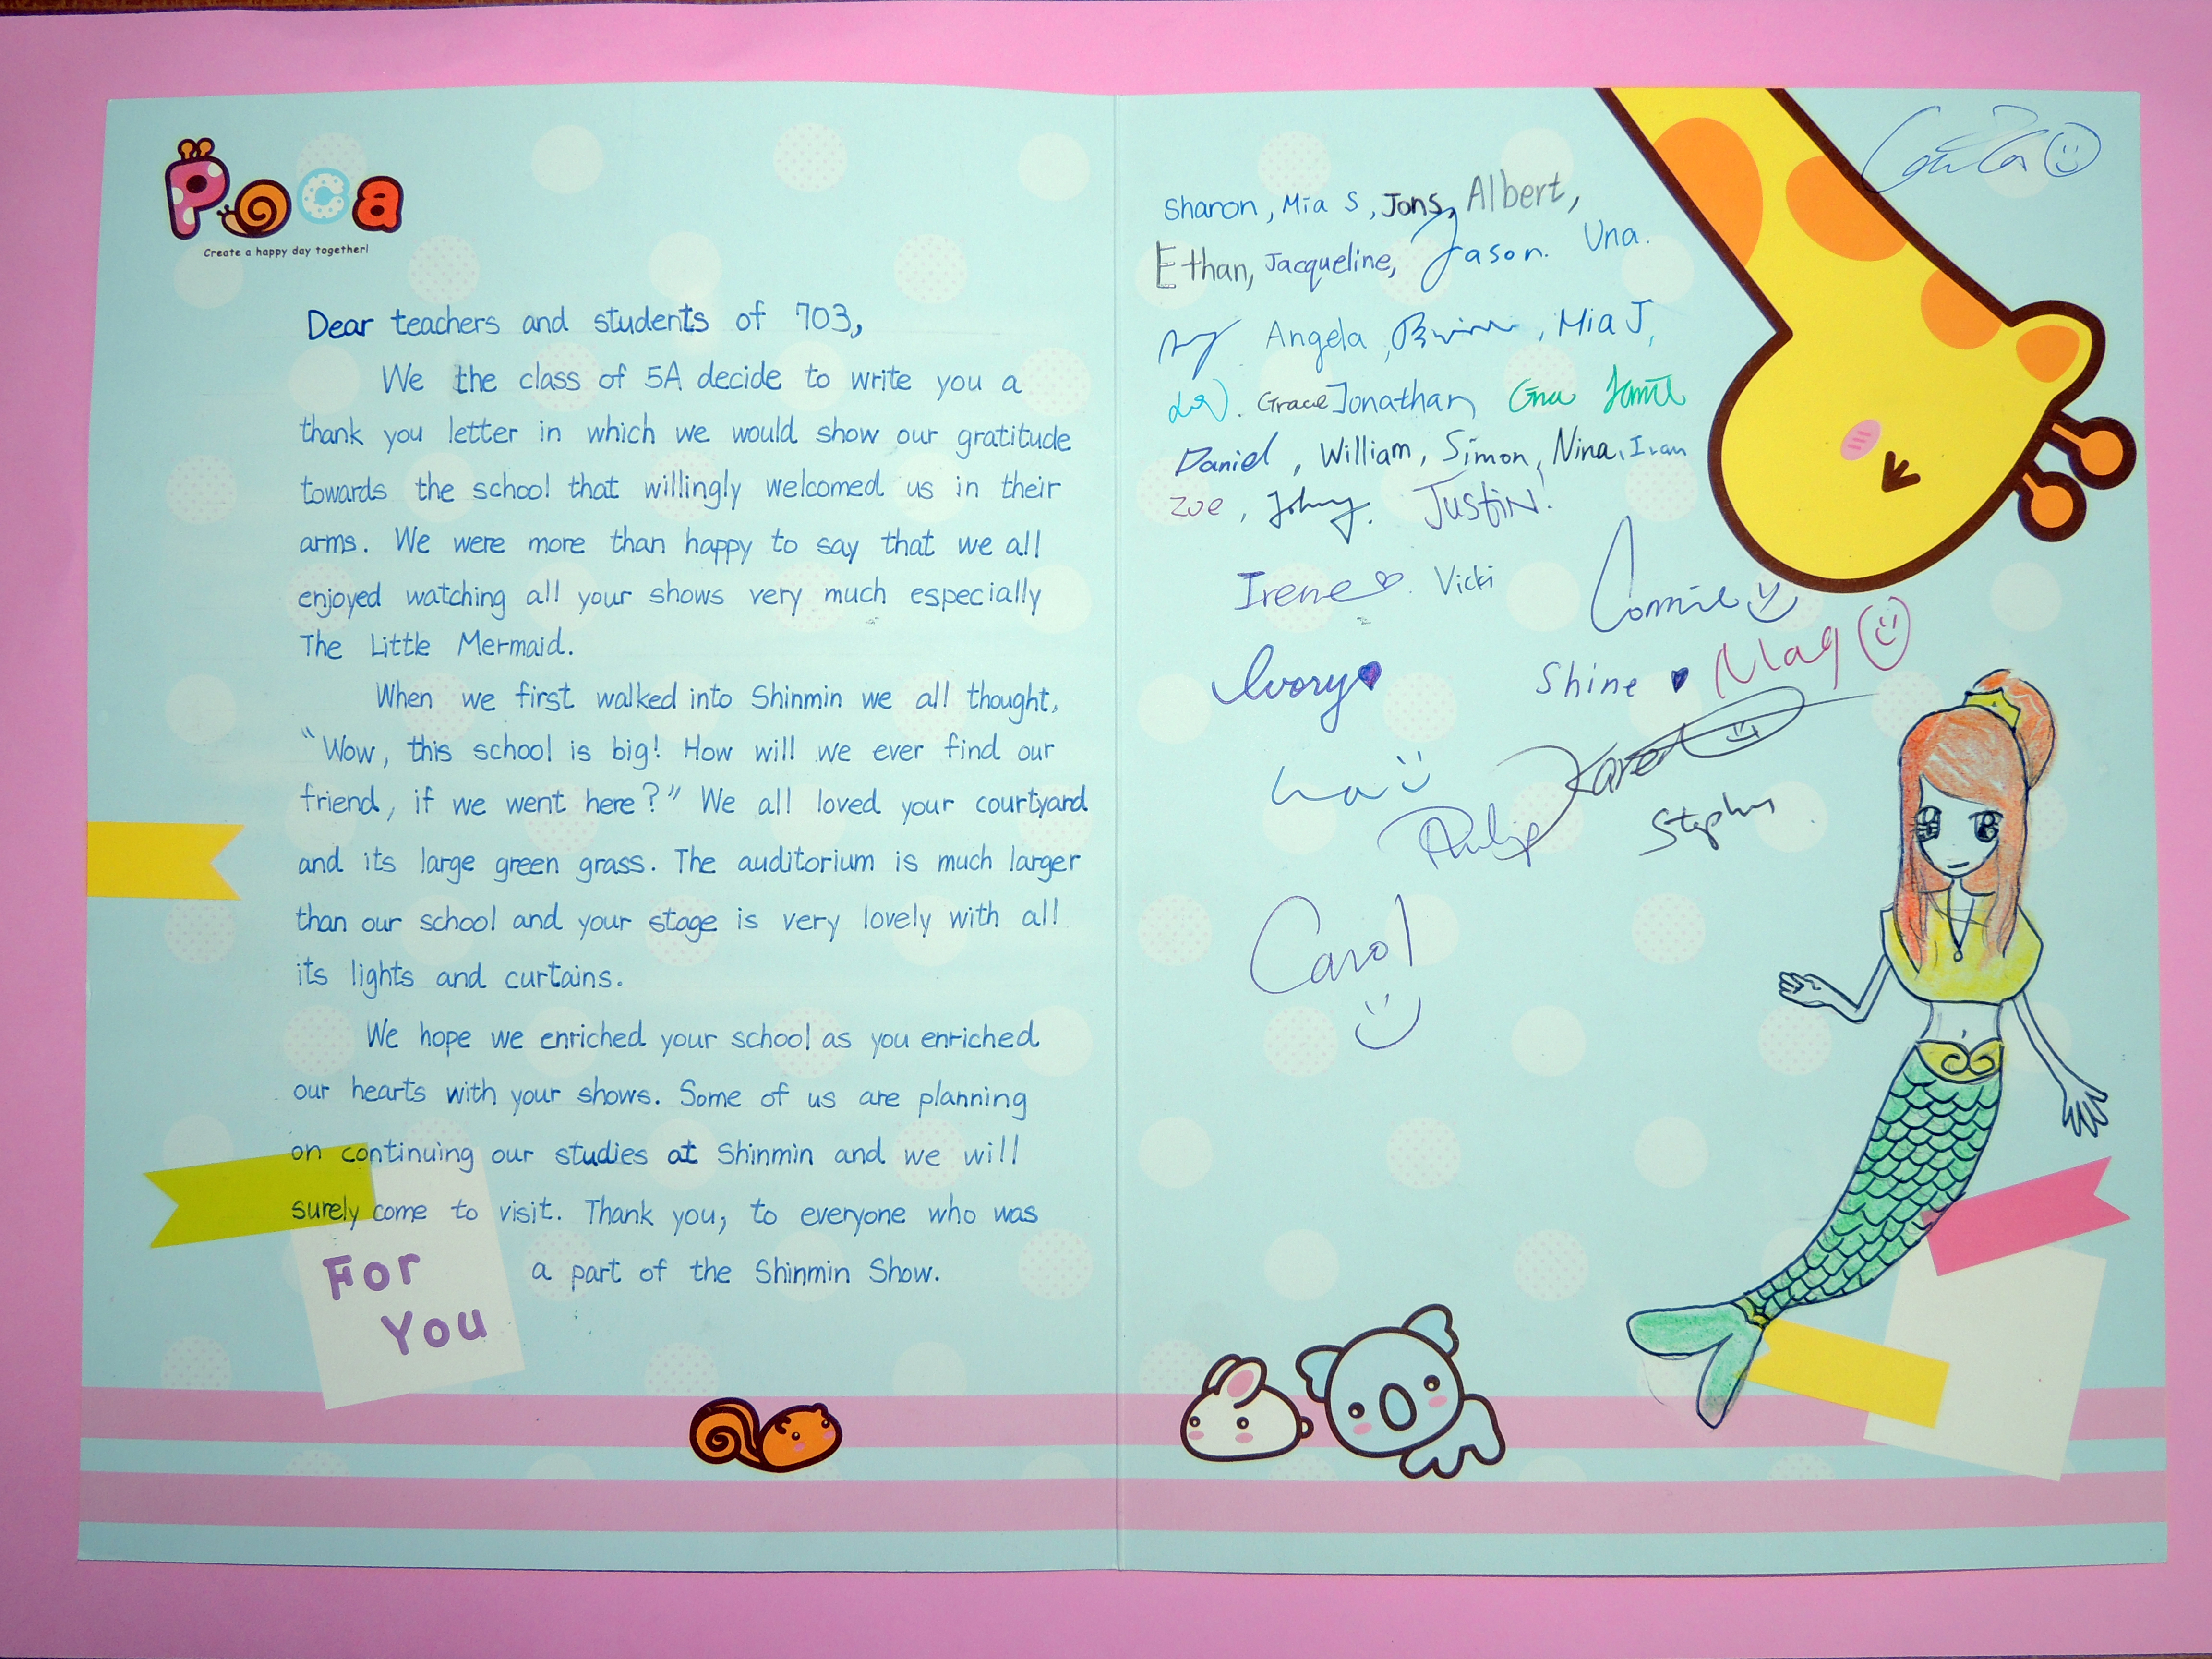 Poca
Create a happy day together!
Dear teachers and students of 703,
We the class of 5A decide to write you a
thank you letter in which we would show our gratitude
towards the school that willingly welcomed us in their
arms. We were more than happy to say that we all
enjoyed watching all your shows very much especially
The Little Mermaid.
When we first walked into Shinmin we all thought,
"Wow, this school is big! How will we ever find our
friend, if we went here?" We all loved your courtyard
and its large green grass. The auditorium is much larger
than our school and your stage is very lovely with all
its lights and curtains.
We hope we enriched your school as you enriched
our hearts with your shows. Some of us are planning
on continuing our studies at Shinmin and we will
surely come to visit. Thank you, to everyone who was
a part of the Shinmin Show.
For
You
Sharon, Mia S, Jons, Albert,
Ethan, Jacqueline, Jason. Una.
Angela, Mia J,
Grace Jonathan
Daniel, William, Simon, Nina, Ivan
Zoe, Johny. Justin.
Irene. Vicki
Connie
Ivory Shine May
Karen
Philip Stephen
Carol